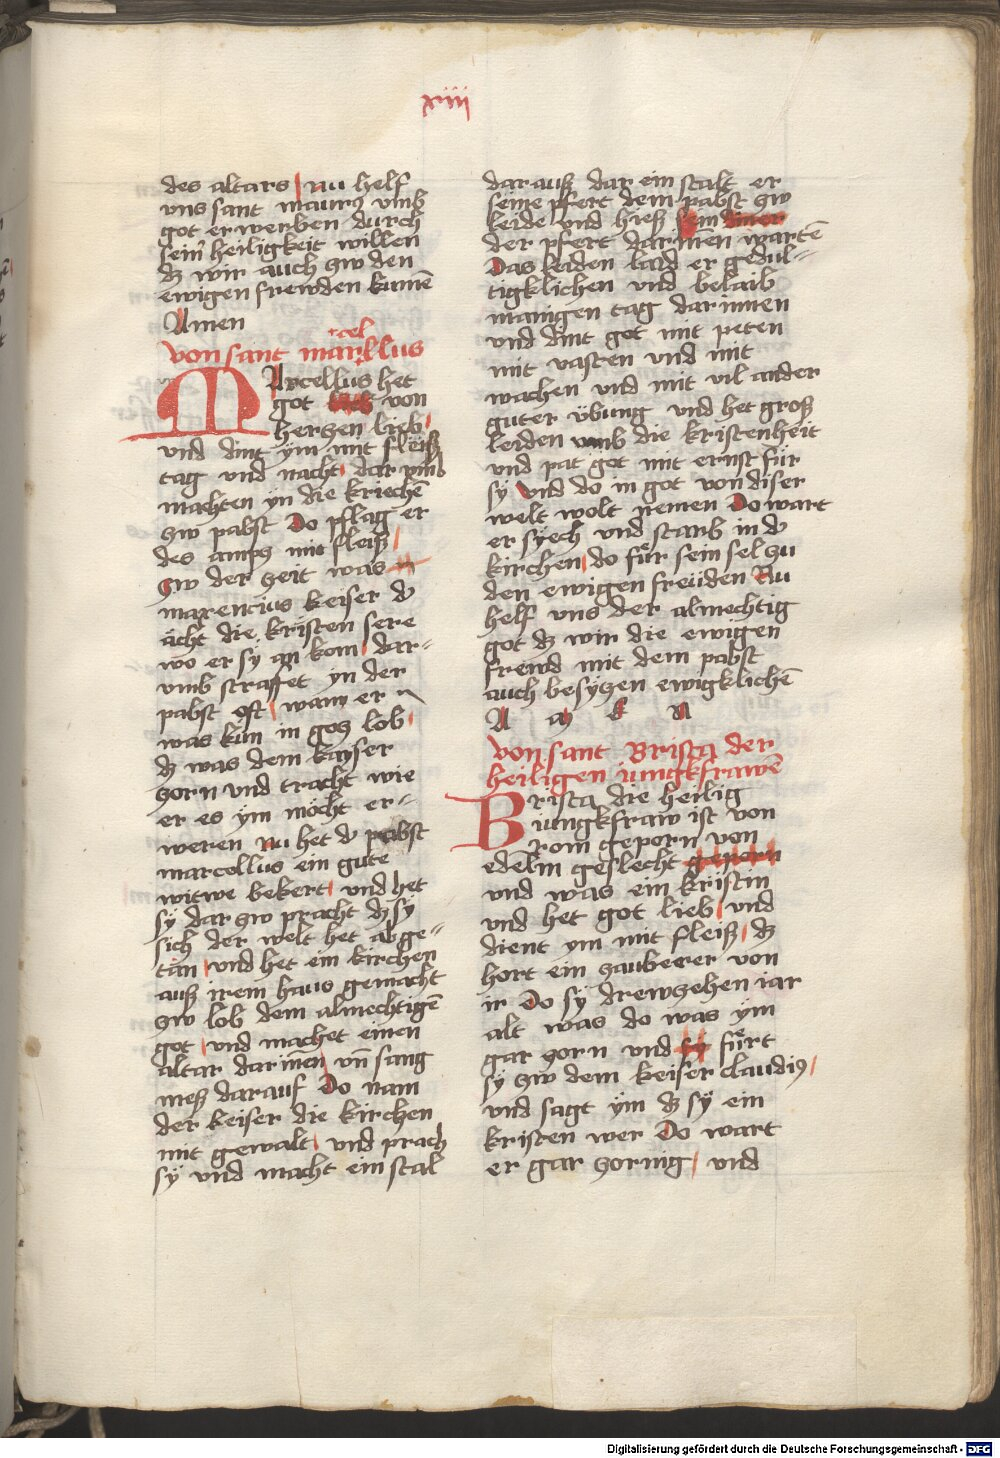 xiiii
des altars nu helf
vns sant maurꝰ vmb
got erwerben durch
sein heiligkeit willen
dz wir auch zw den
ewigen frewden kumē
Amen
von sant marcellus
MArcellus het
got von
herzen lieb
vnd dint ym mit fleiß
tag vnd nacht dar vmb
machten yn die kriechē
zw pabst Do pflag er
des ampz mit fleiß
zw der zeit was
maxencius keiser d̕
ächt die kristen sere
wo er sy an kom dar-
vmb straffet yn der
pabst oft wann er
was kün in gotz lob
dz was dem kayser
zorn vnd tracht wie
er es ym möcht er-
weren nu het d̕ pabst
marcollus ein gute
witwe bekert vnd het
sy dar zw pracht dz sy
sich der welt het abge-
tan vnd het ein kirchen
auß irem haus gemacht
zw lob dem almechtigē
got vnd machet einen
altar darinēn vn̄ sang
meß darauf Do nam
der keiser die kirchen
mit gewalt vnd prach
sy vnd macht ein stal
darauß dar ein stalt er
seine pfert dem pabst zw
leide vnd hieß
der pfert darinnen wartē
Das leiden laid er gedul-
tigklichen vnd belaib
manigen tag darinnen
vnd dint got mit peten
mit vasten vnd mit
wachen vnd mit vil ander
guter übung vnd het groß
leiden vmb die kristenheit
vnd pat got mit ernst für
sy vnd do in got von diser
welt wolt nemen Do wart
er syech vnd starb in d̕
kirchen do für sein sel zu
den ewigen freüden Nu
helf vns der almechtig
got dz wir die ewigen
frewd mit dem pabst
auch besyzen ewigklichē
A m E N
von sant Brisca der
heiligen iungkfrawē
Brisca die heilig
iungkfraw ist von
rom geporn von
edelm geslecht geporn
vnd was ein kristin
vnd het got lieb vnd
dient ym mit fleiß dz
hort ein zauberer von
ir Do sy drewzehen iar
alt was do was ym
gar zorn vnd fürt
sy zw dem keiser claudiꝰ
vnd sagt ym dz sy ein
kristen wer Do wart
er gar zornig vnd
Digitalisierung gefördert durch die Deutsche Forschungsgemeinschaft - DFG